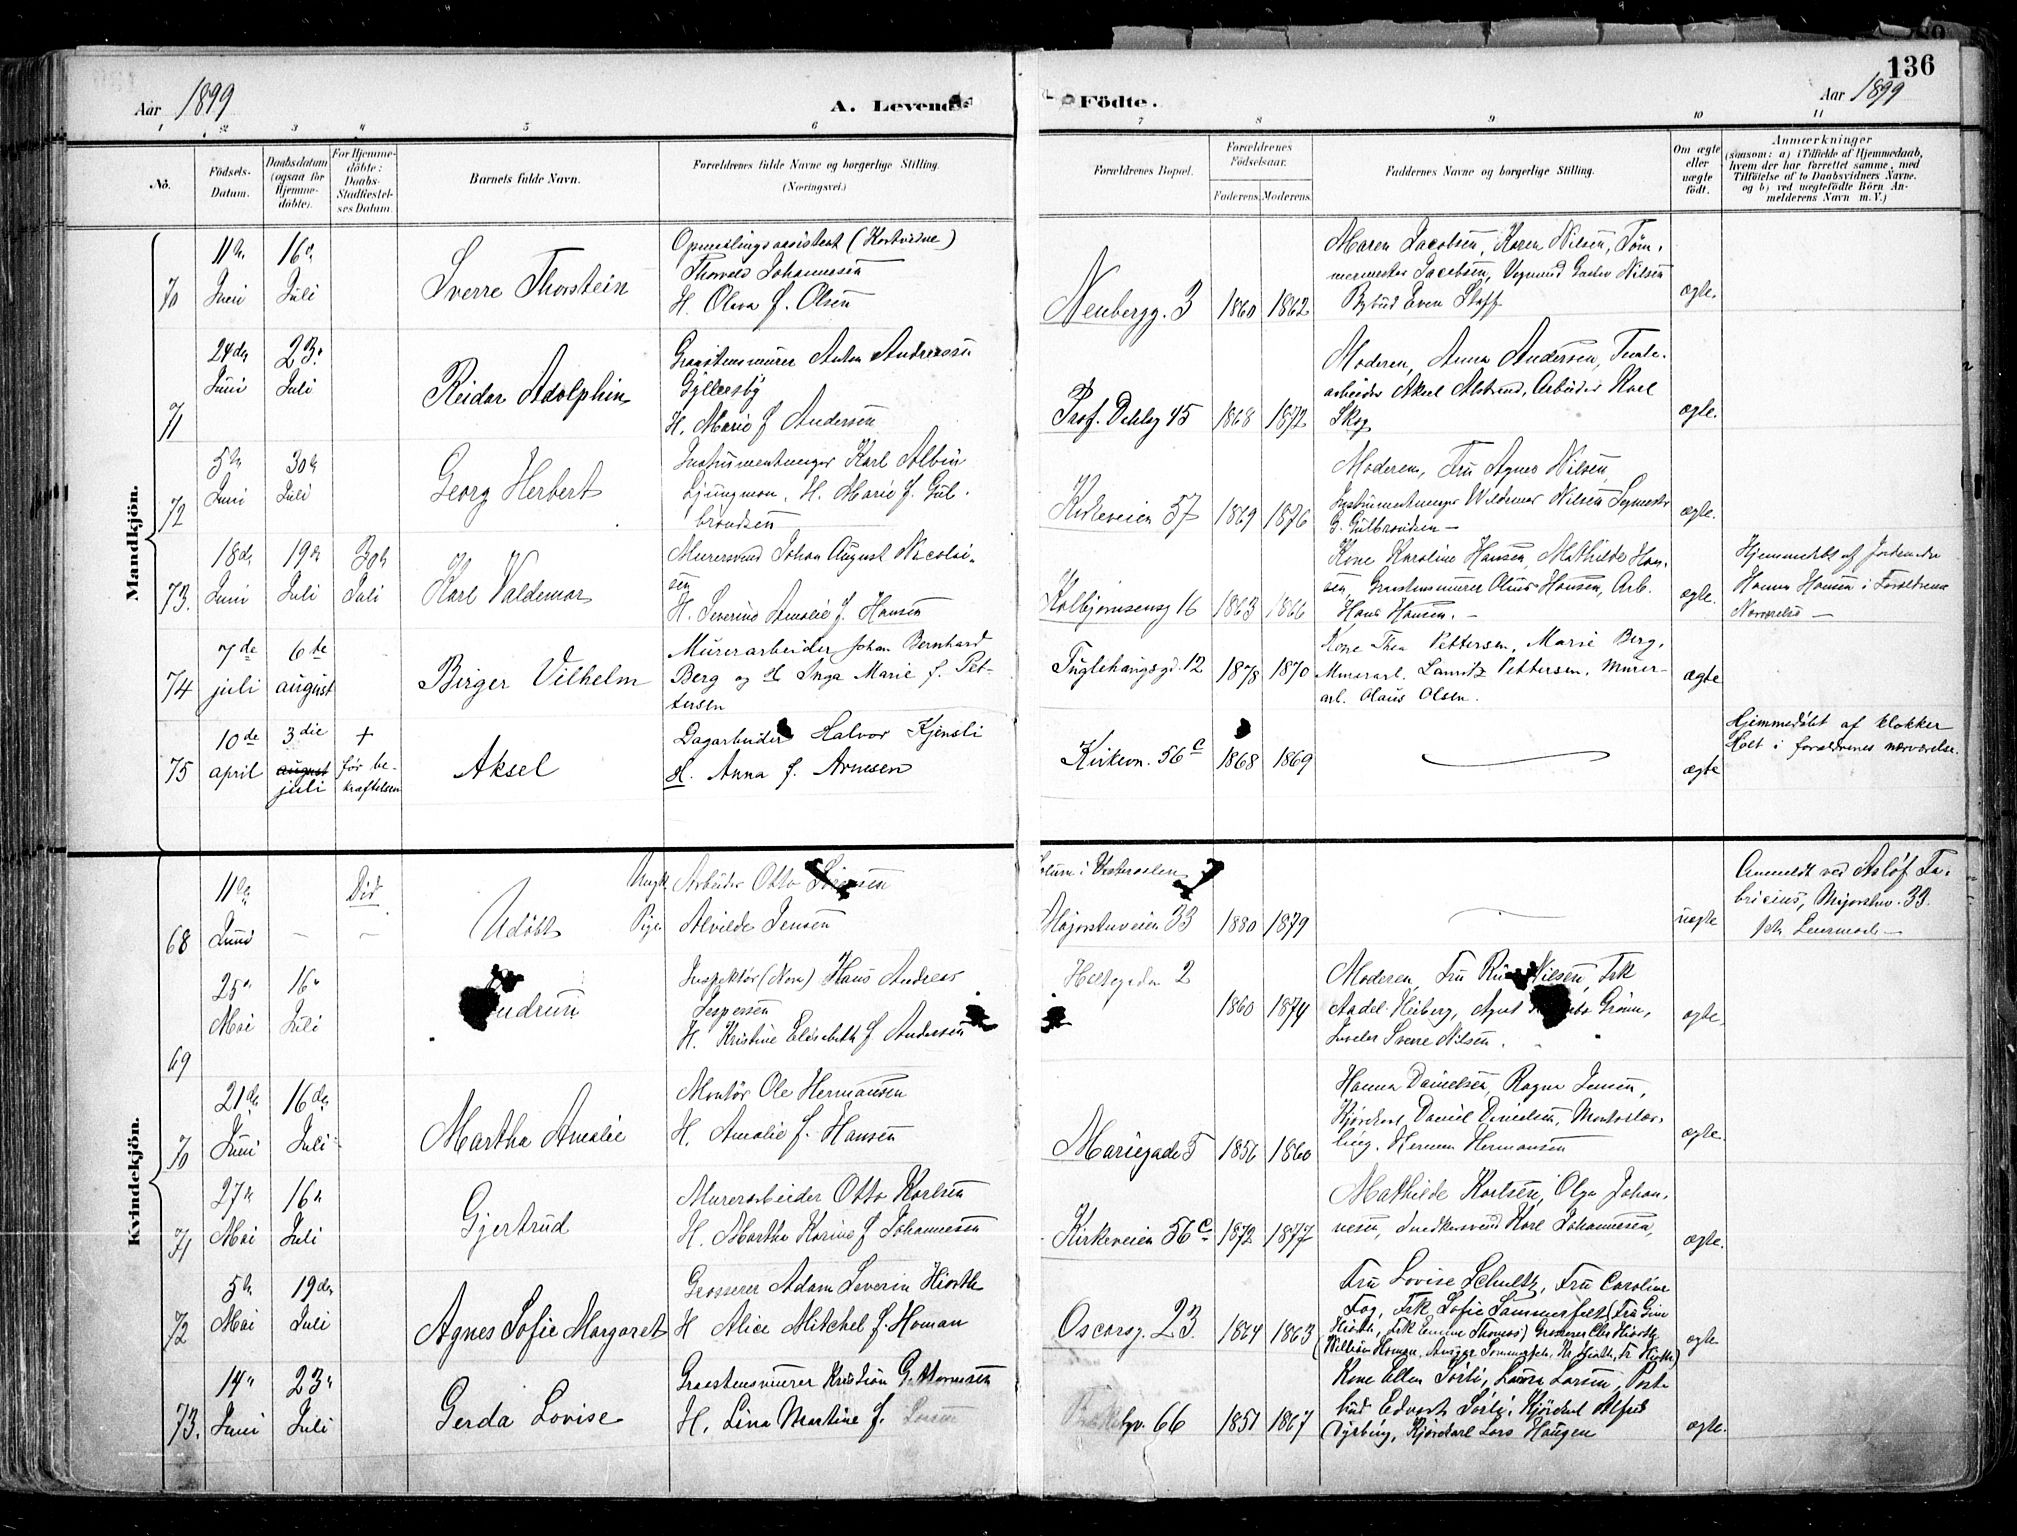 136
Aar 1899
A. Levende
Födte.
Aar 1899
1 2 3 4 5 6 7 8 9 10 11
No.
Födsels-Datum.
Daabsdatum (ogsaa for Hjemme-döbte).
For Hjemme-döbte: Daabs-Stadfæstel-ses Datum.
Barnets fulde Navn.
Forældrenes fulde Navne og borgerlige Stilling.
(Næringsvei.)
Forældrenes Bopæl.
Forældrenes Födselsaar.
Faderens. Moderens.
Faddernes Navne og borgerlige Stilling.
Om ægte eller uægte født.
Anmærkninger
(saasom: a) i Tilfælde af Hjemmedaab,
hvem der har forrettet samme, med
Tilföielse af to Daabsvidners Navne,
og b) ved uægtefödte Börn An-
melderens Navn m. V.)
Mandkjön.
70 11te Juni 16de Juli
Sverre Thorstein
Opmaalingsassistent
Thorvald Johannessen
H. Oliva f. Olsen
Neubergg. 3 1860 1862
Maren Jacobsen, Karen Nilsen, Töm-
mermester Jacobsen, Nilsen
Bybud Even Staff
ægte.
71 24de Juni 23. Juli
Reidar Adolphin
Graastensmurer Anton Andreassen
Gyllersby
H. Marie f Andersen
Prof. Dahlsg 45 1868 1872
Moderen, Anna Andersen,
arbeider Aksel Arbeider Karl
Skog
ægte.
72 5te Juni 30te Juli
Georg Herbert
Instrumentmager Karl Albin
Ljungman, H. Marie f. Gul-
brandsen
Kirkeveien 57 1869 1876
Moderen, Fru Agnes Nilsen
Instrumentmager Nilsen
G. Gulbrandsen —
ægte.
73. 18de Juni 19de Juli 30te Juli
Karl Valdemar
Murersvend Johan August Nicolai-
sen
H. Severine Amalie f. Hansen
Kolbjørnsensg 16 1863 1866
Kone Karoline Hansen, Mathilde Han-
sen, Graastensmurer Hansen, Arb.
Hans Hansen. —
ægte.
Hjemmedöbt af Jordemoder
Hanna Hansen i Forældrenes
Nærværelse —
74 7de juli 6te august
Birger Vilhelm
Murerarbeider Johan Bernhard
Berg og H Inga Marie f. Pet-
tersen
Fuglehaugsgd. 12 1878 1870
Kone Thea Pettersen, Marie Berg,
Murerarb. Lauritz Pettersen, Murer-
arb. Olaus Olsen.
ægte
75 10de april 3die august juli
+ før be-kræftelsen
Aksel
Dagarbeider Halvor Kjensli
H. Anna f. Arnesen
Kirkevn. 56c 1868 1869
ægte
Hjemmedöbt af klokker
Holt i forældrenes nærværelse.
Kvindekjön.
68 11te Juni — Död —
Udöbt Pige
Arbeider Otto
Alvilde Jensen
Majorstuveien 33 1880 1879
uægte
Anmeldt ved
Majorstuv. 33.
69 25de Mai 16de Juli
Gudrun
Inspektør (Nora) Hans Andreas
Jespersen
H. Kristine Elisabeth f Andersen
Holtegaden 2 1860 1874
Moderen, Fru Nilsen, Frk
Heiberg, Agent Grönn,
Juveler Sverre Nilsen.
ægte.
70 21de Juni 16de Juli
Martha Amalie
Montör Ole Hermansen
H. Amalie f. Hansen
Mariegade 5 1856 1860
Hanna Danielsen, Ragna Jensen,
Kjörekarl Daniel Danielsen, Montörlær-
ling, Herman Hermansen
ægte.
71 27de Mai 16de Juli
Gjertrud
Murerarbeider Otto Karlsen
H. Martha Karine f Johannessen
Kirkeveien 56c 1872 1877
Mathilde Karlsen, Olga Johan-
nesen, Snedkersvend Karl Johannessen,
ægte.
72 5te Mai 19de Juli
Agnes Sofie Margaret
Grosserer Adam Severin Hiorth
H Alice Mitchel f. Homan
Oscarsg. 23. 1864 1863
Fru Lovise Schultz, Fru Caroline
Fog, Frk Sofie Sommerfelt
Hiorth, Frk Emma Thomas, Grosserer Hiorth
William Homan,
ægte
73. 14de Juni 23de Juli
Gerda Lovise
Graastensmurer Kristian Guttormsen
H. Lina Martine f. Larsen
66 1851 1867
Kone Ellen Sörli, Laura Larsen, Post-
bud Edvart Sörli, Kjörekarl Alfred
Kjörekarl Lars Haugen
ægte.